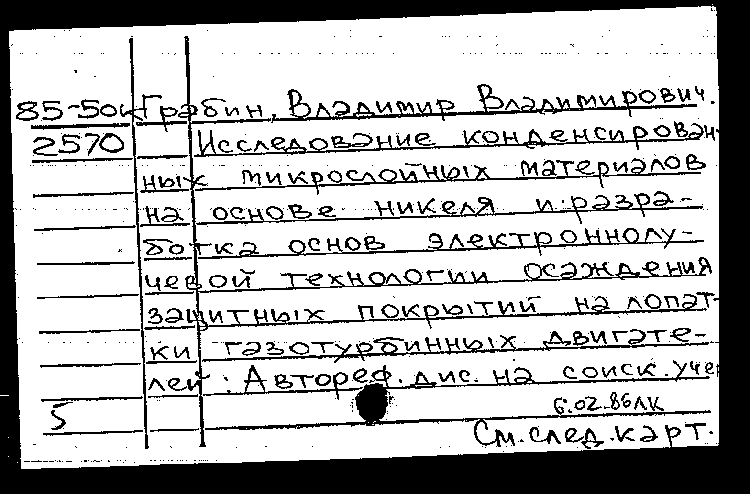 85-50к Грабин, Владимир Владимирович.
2570 Исследование конденсирован-
ных микрослойных материалов
на основе никеля и разра-
ботка основ электроннолу-
чевой технологии осаждения
защитных покрытий на лопат-
ки газотурбинных двигате-
лей: Автореф. дис. на соиск. учен
5 6.02.86 ЛК
См. след. карт.